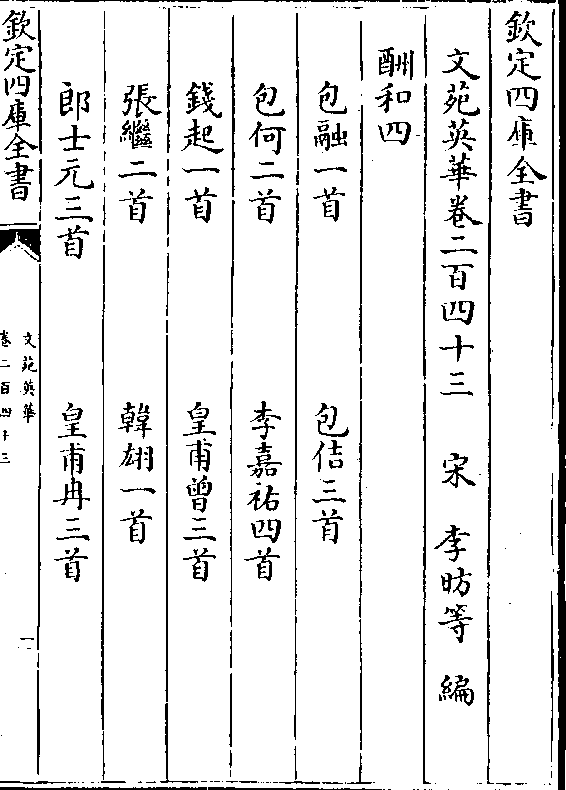 欽定四庫全書
文苑英華卷二百四十三　宋　李昉等　編
酬和四
包融一首　包佶三首
包何二首　李嘉祐四首
錢起一首　皇甫曾三首
張繼二首　韓翃一首
郎士元三首　皇甫冉三首
欽定四庫全書
文苑英華
卷二百四十三
一